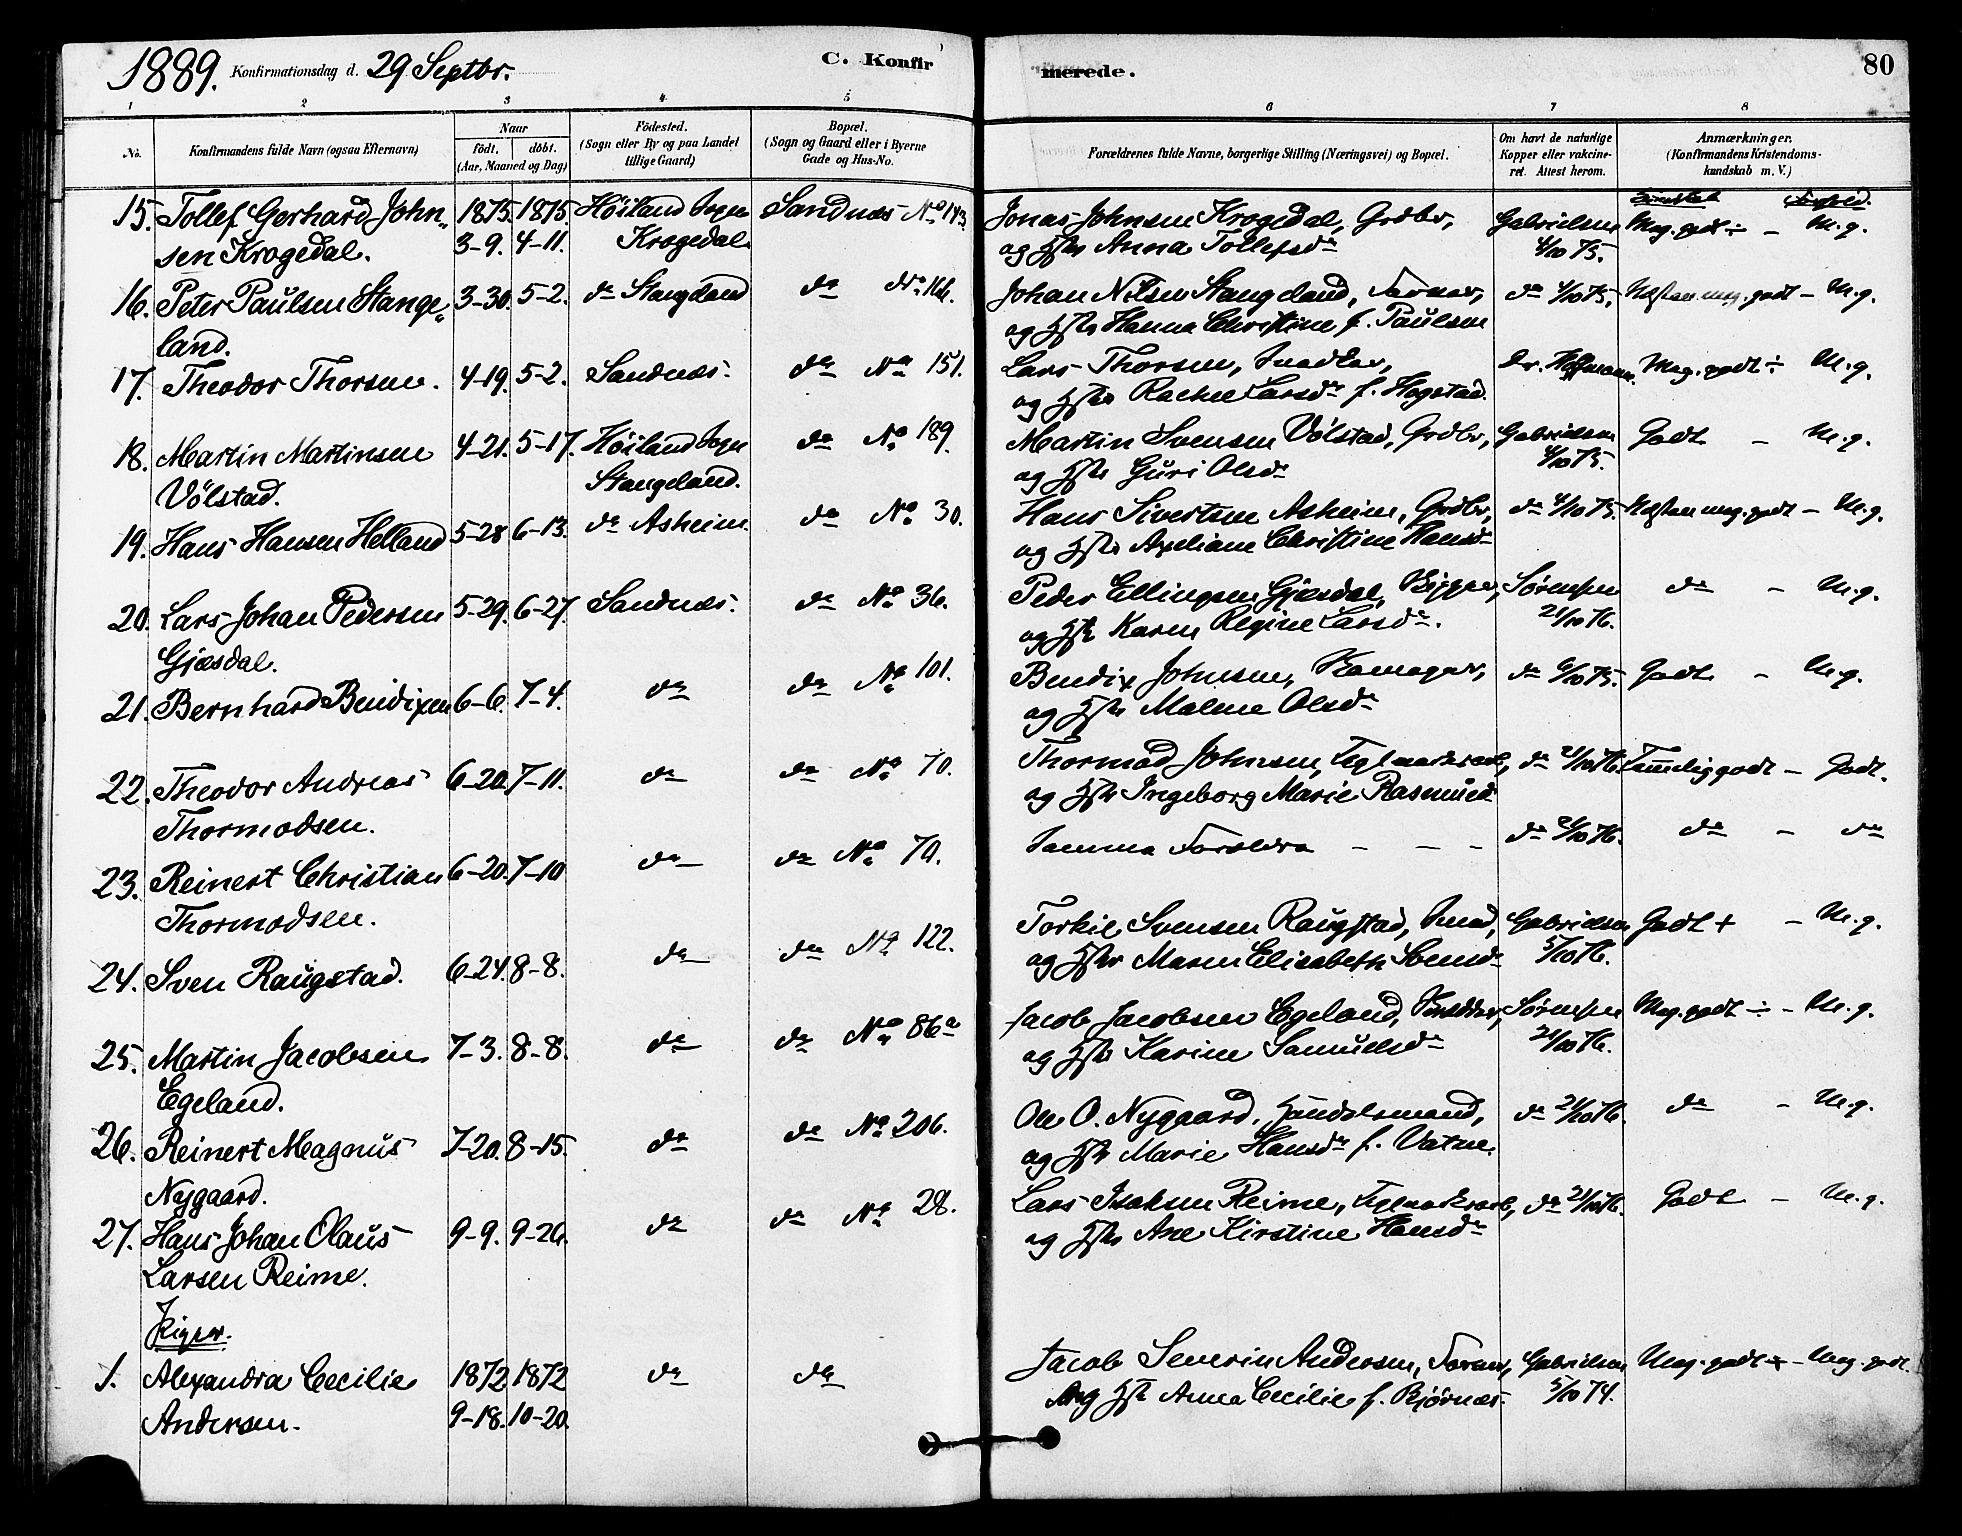 1889. Konfirmationsdag d. 29 Septbr. C. Konfirmerede. 80
1 2 3 4 5 6 7 8
No. Konfirmandens fulde Navn (ogsaa Efternavn) Naar født. døbt. (Aar, Maaned og Dag) Födested. (Sogn eller By og paa Landet tillige Gaard) Bopæl. (Sogn og Gaard eller i Byerne Gade og Hus-No. Forældrenes fulde Navne, borgerlige Stilling (Næringsvei) og Bopæl. Om havt de naturlige Kopper eller vakcineret. Attest herom. Anmærkninger. (Konfirmandens Kristendomskundskab m. V.)
15. Tollef Gerhard John- 1875 1875 Höiland Sogn Sandnæs No 143. Jonas Johnsen Krogedal, Grdbr, Gabrielsen Meg. godt ÷ – M. g.
sen Krogedal. 3-9. 4-11. Krogedal. og Hstr Anna Tollefsdr 4/10 75.
16. Peter Paulsen Stange- 3-30. 5-2. do Stangeland do No 166. Johan Nilsen Stangeland, Farver, do 4/10 75. Næsten meg. godt – M. g.
land. og Hstr Hanna Christine f. Paulsen
17. Theodor Thorsen. 4-19. 5-2. Sandnæs. do No 151. Lars Thorsen, Snedker, Dr. Hoffmann. Meg. godt ÷ M. g.
og Hstr Rachel Larsdr f. Hogstad.
18. Martin Martinsen 4-21. 5-17. Höiland Sogn do No 189. Martin Svensen Völstad, Grdbr, Gabrielsen Godt – M. g.
Völstad. Stangeland. og Hstr Guri Olsdr 4/10 75.
19. Hans Hansen Helland 5-28 6-13. do Asheim. do No 30. Hans Sivertsen Asheim, Grdbr, do 4/10 75. Næsten meg. godt – M. g.
og Hstr Axeliane Christine Hansdr
20. Lars Johan Pedersen 5-29. 6-27. Sandnæs. do No 36. Peder Ellingsen Gjæsdal, Skipper, Sørenssen do – M. g.
Gjæsdal. og Hstr Karen Regine Larsdr. 21/10 76.
21. Bernhard Bendixen 6-6. 7-4. do do No 101. Bendix Johnsen, Skomager, do 6/10 75. Godt – M. g.
og Hstr Malene Olsdr
22. Theodor Andreas 6-20. 7-11. do do No 70. Thormod Johnsen, Teglværksarb, do 21/10 76. Temmelig godt – Godt.
Thormodsen. og Hstr Ingeborg Marie Rasmusd
23. Reinert Christian 6-20. 7-10 do do No 70. Samme Forældre – – – do 21/10 76. do – do
Thormodsen.
24. Sven Raugstad. 6-24. 8-8. do do No 122. Torkil Svensen Raugstad, Smed, Gabrielsen Godt + – M. g.
og Hstr Maren Elisabeth Svensdr 5/10 76.
25. Martin Jacobsen 7-3. 8-8. do do No 86a Jacob Jacobsen Egeland, Skrædder, Sørenssen Meg. godt ÷ – M. g.
Egeland. og Hstr Karine Samuelsdr 21/10 76.
26. Reinert Magnus 7-20. 8-15. do do No 206. Ole O. Nygaard, Handelsmand, do 21/10 76. do – M. g.
Nygaard. og Hstr Marie Hansdr f. Vatne.
27. Hans Johan Olaus 9-9. 9-26. do do No 28. Lars Isaksen Reime, Teglværksarb, do 21/10 76. Godt – M. g.
Larsen Reime. og Hstr Ane Kirstine Hansdr
Piger.
1. Alexandra Cecilie 1872 1872 do do Jacob Severin Andersen, Farver, Gabrielsen Meg. godt + – Meg. godt.
Andersen. 9-18. 10-20. og Hstr Anna Cecilie f. Bjørnæs. 5/10 74.